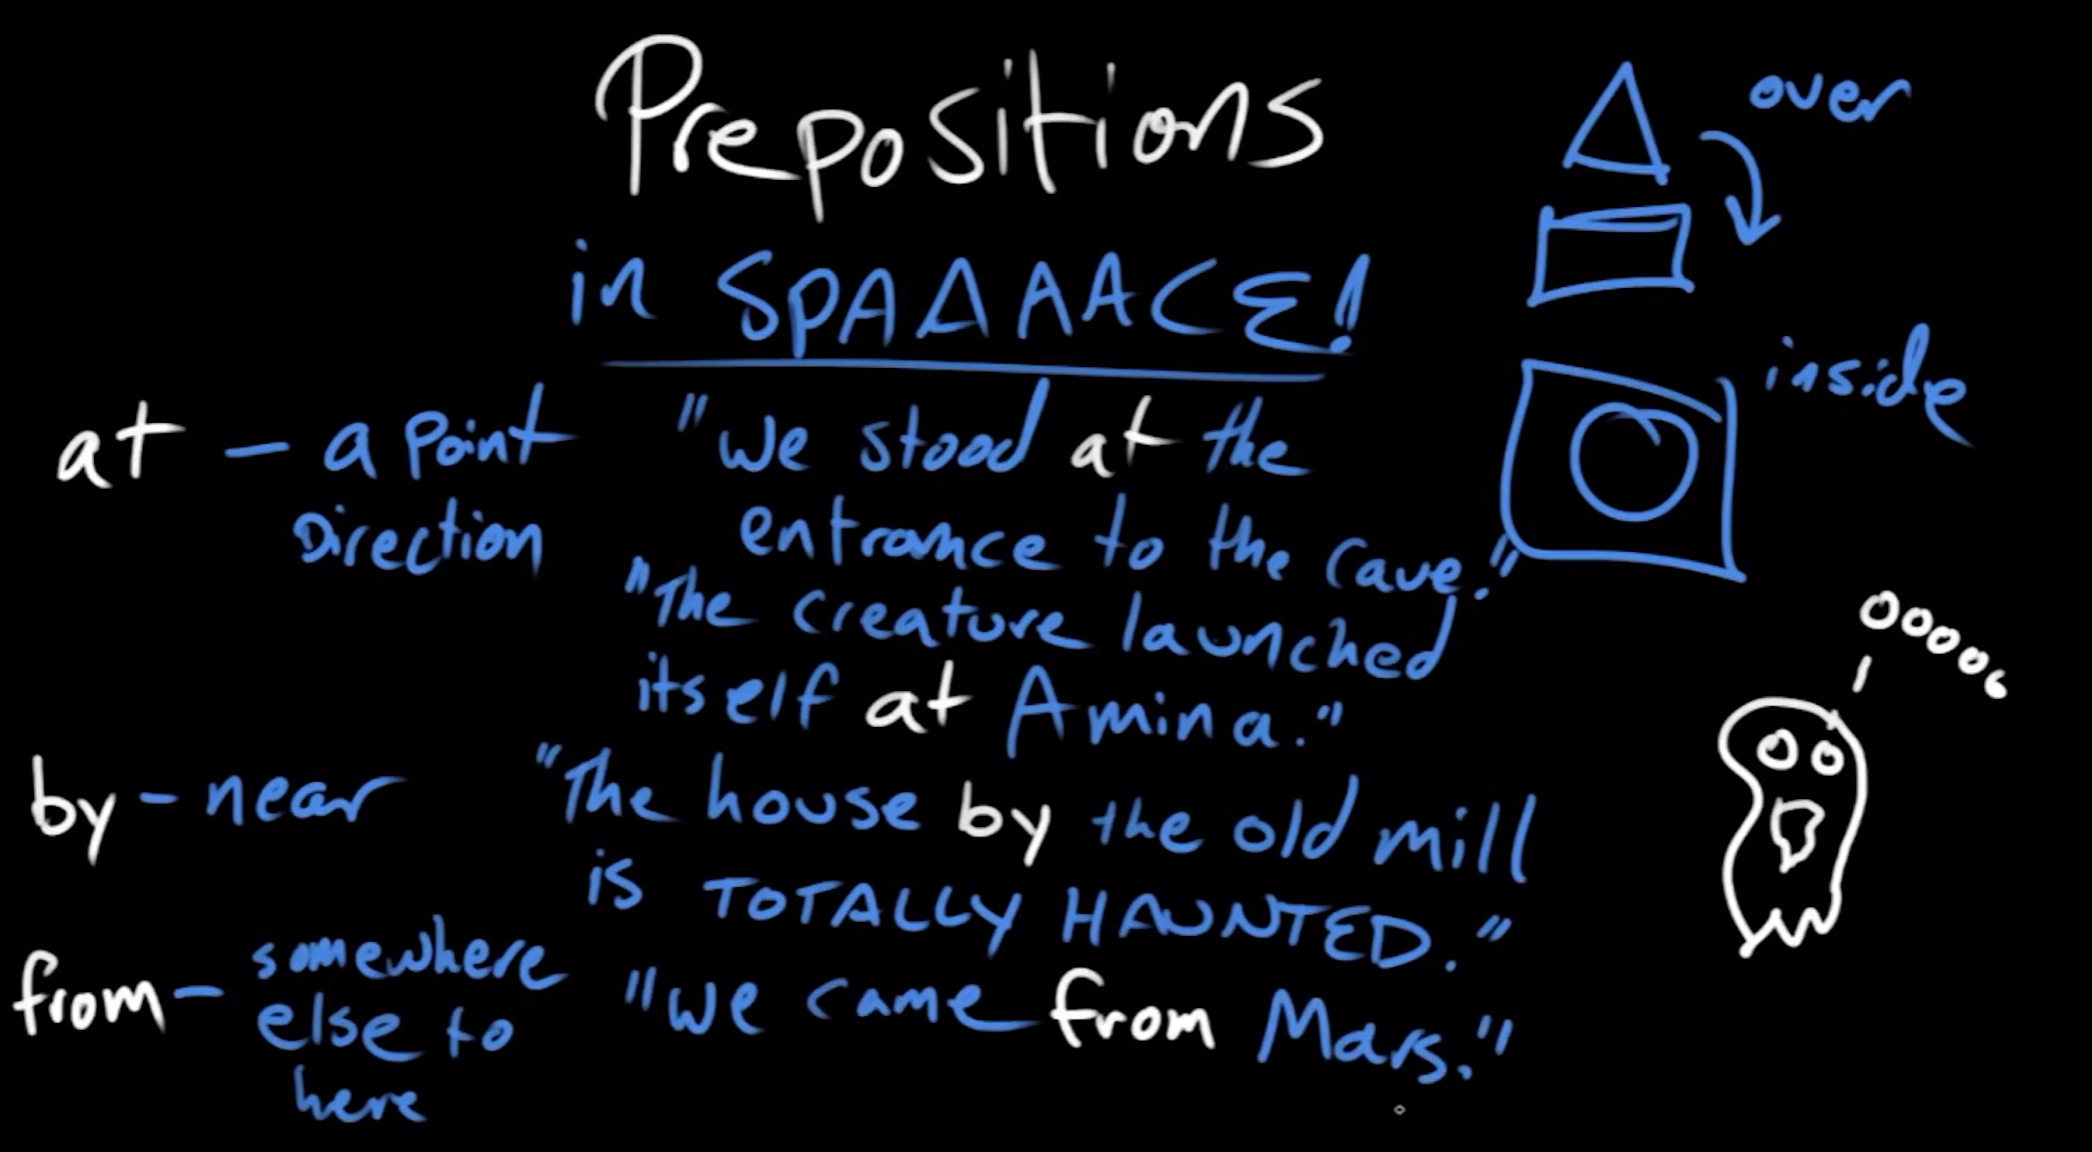 Prepositions
in SPAAAACE!
over
inside
at – a point
direction
"We stood at the
entrance to the cave."
"The creature launched
itself at Amina."
by – near
"The house by the old mill
is TOTALLY HAUNTED."
from – somewhere
else to
here
"We came from Mars."
ooooo